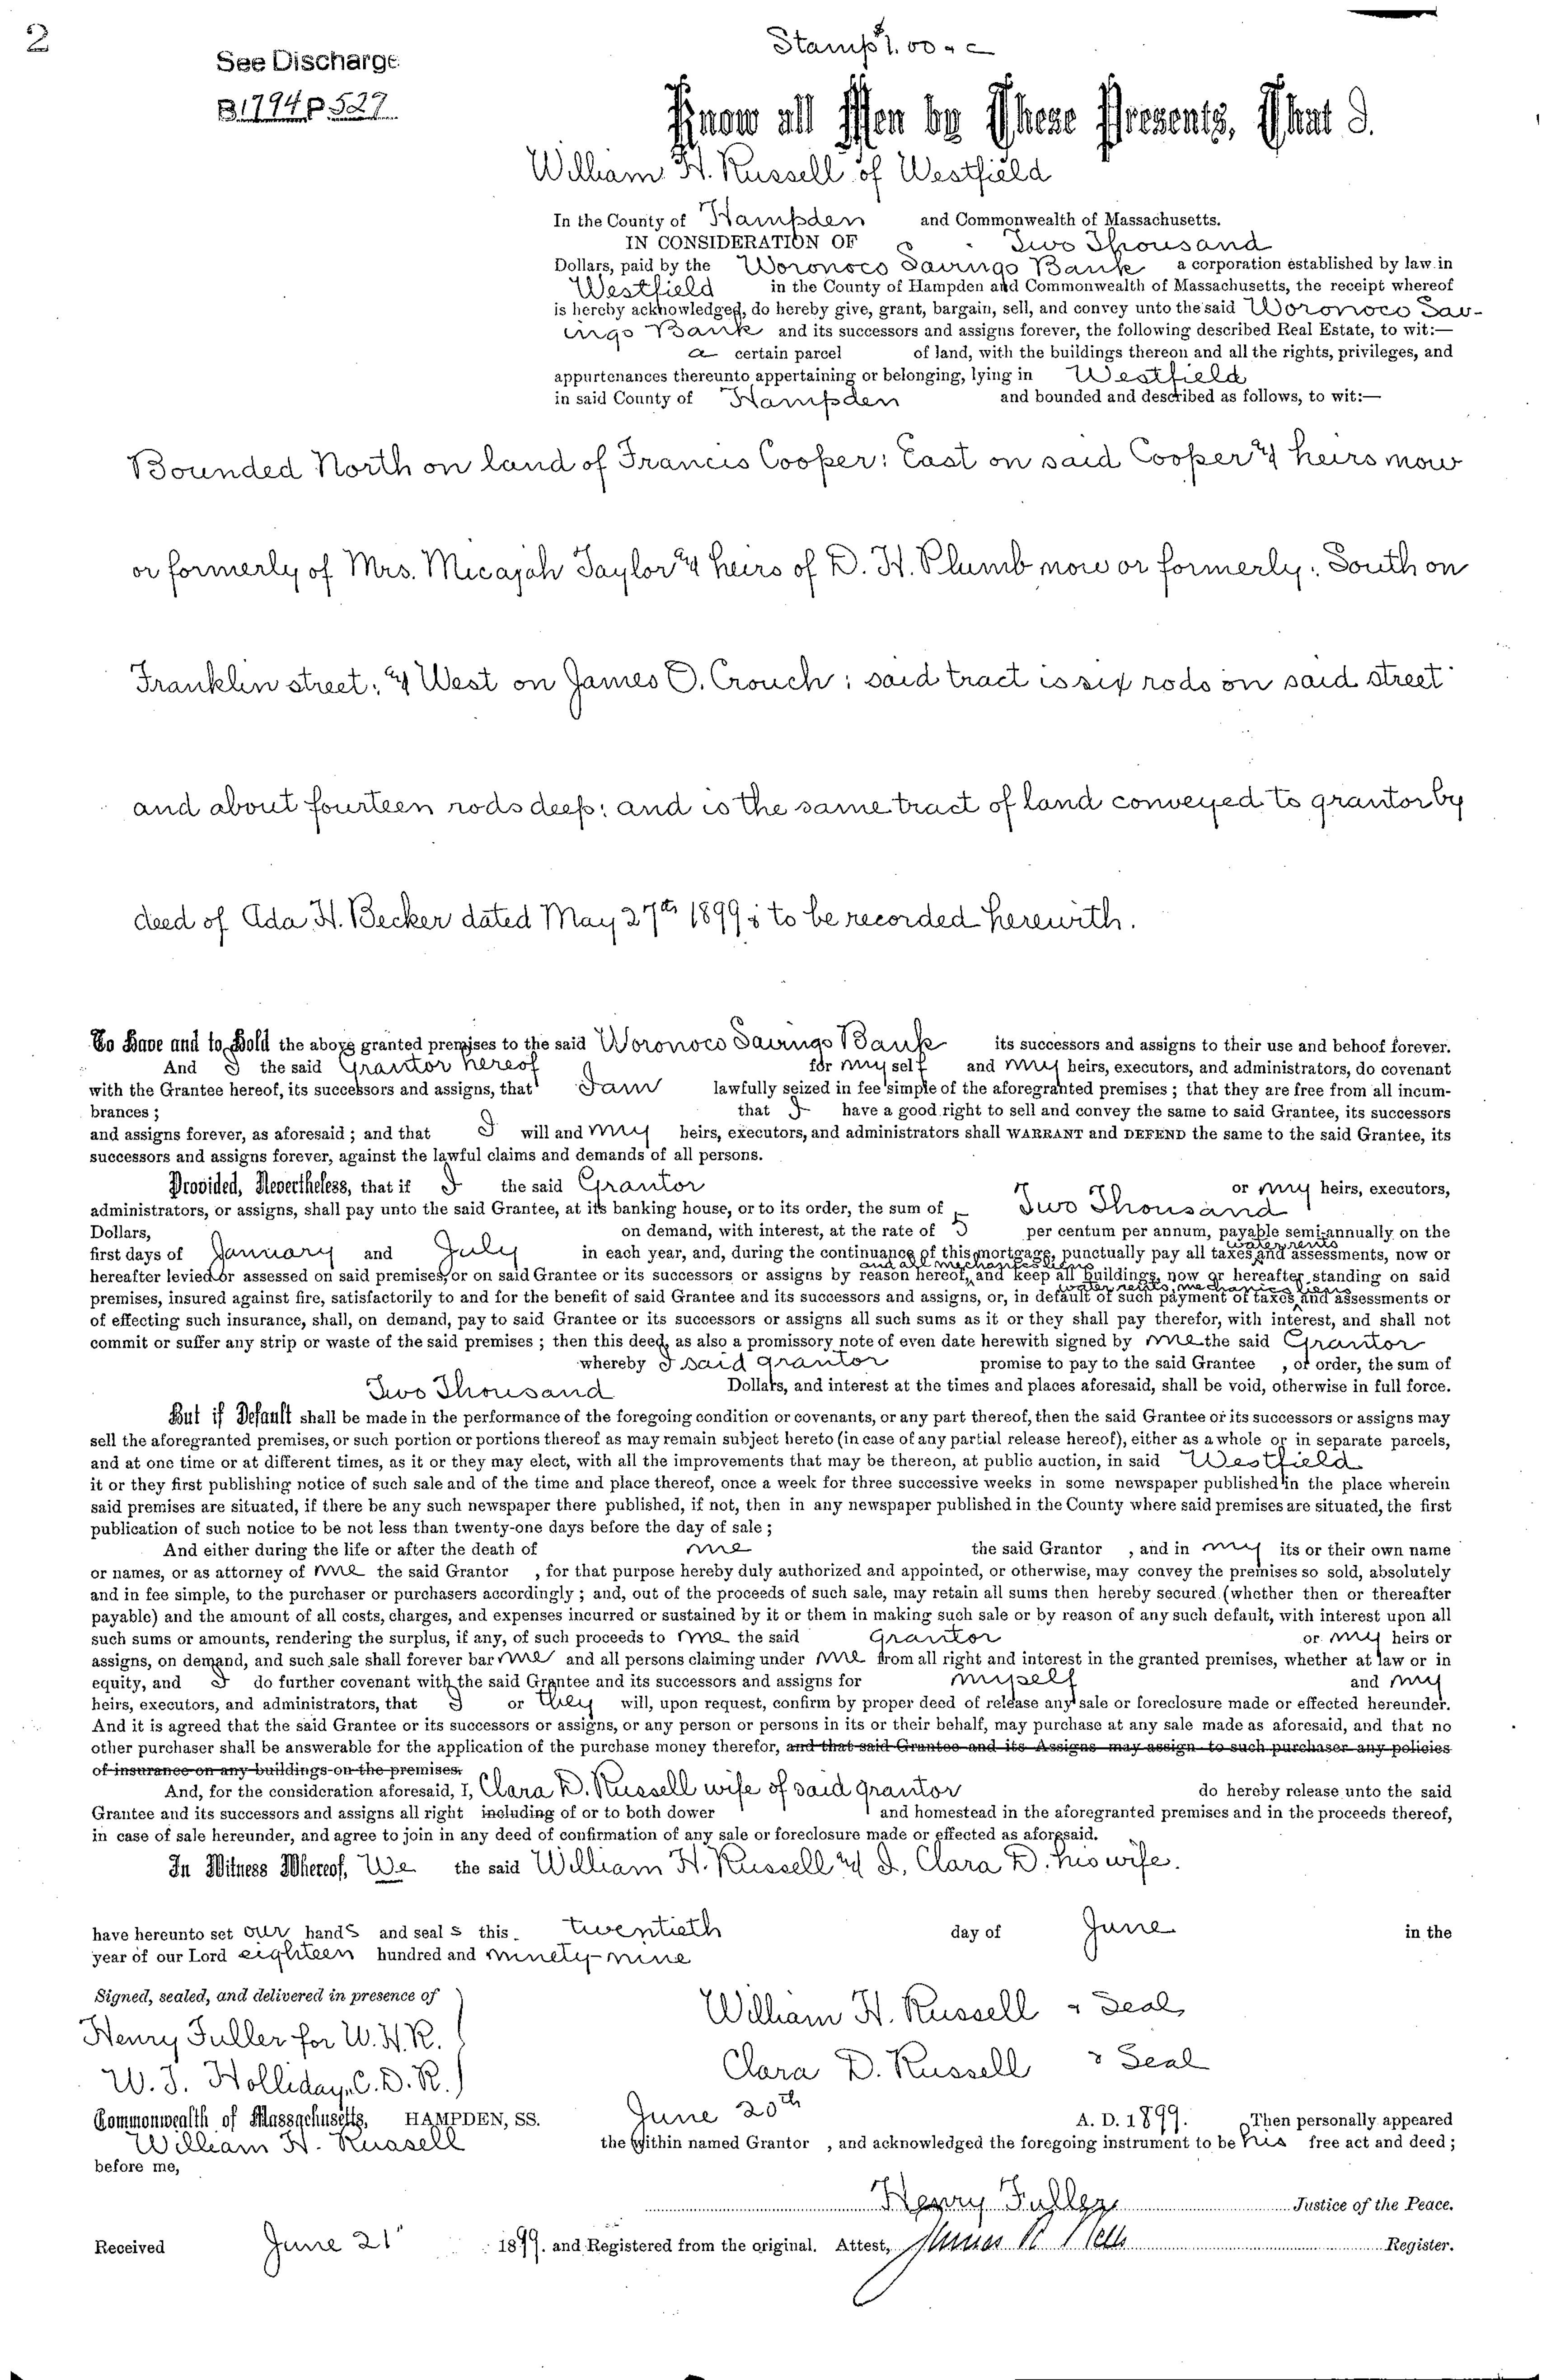 2
See Discharge
B1794P527
Stamp $1.00 & C
Know all Men by These Presents, That I.
William H. Russell of Westfield
In the County of Hampden and Commonwealth of Massachusetts.
IN CONSIDERATION OF Two Thousand
Dollars, paid by the Woronoco Savings Bank a corporation established by law in
Westfield in the County of Hampden and Commonwealth of Massachusetts, the receipt whereof
is hereby acknowledged, do hereby give, grant, bargain, sell, and convey unto the said Woronoco Sav-
ings Bank and its successors and assigns forever, the following described Real Estate, to wit:—
a certain parcel of land, with the buildings thereon and all the rights, privileges, and
appurtenances thereunto appertaining or belonging, lying in Westfield
in said County of Hampden and bounded and described as follows, to wit:—
Bounded North on land of Francis Cooper: East on said Cooper & heirs now
or formerly of Mrs. Micajah Taylor & heirs of D. H. Plumb now or formerly: South on
Franklin street: & West on James O. Crouch: said tract is six rods on said street
and about fourteen rods deep: and is the same tract of land conveyed to grantor by
deed of Ada H. Becker dated May 27th 1899; to be recorded herewith.
To Have and to Hold the above granted premises to the said Woronoco Savings Bank its successors and assigns to their use and behoof forever.
And I the said Grantor hereof for myself and my heirs, executors, and administrators, do covenant
with the Grantee hereof, its successors and assigns, that I am lawfully seized in fee simple of the aforegranted premises; that they are free from all incum-
brances; that I have a good right to sell and convey the same to said Grantee, its successors
and assigns forever, as aforesaid; and that I will and my heirs, executors, and administrators shall WARRANT and DEFEND the same to the said Grantee, its
successors and assigns forever, against the lawful claims and demands of all persons.
Provided, Nevertheless, that if I the said Grantor or my heirs, executors,
administrators, or assigns, shall pay unto the said Grantee, at its banking house, or to its order, the sum of Two Thousand
Dollars, on demand, with interest, at the rate of 5 per centum per annum, payable semi-annually on the
first days of January and July in each year, and, during the continuance of this mortgage, punctually pay all taxes water rents and assessments, now or
hereafter levied or assessed on said premises, or on said Grantee or its successors or assigns by reason hereof, and all mechanics liens and keep all buildings, now or hereafter standing on said
premises, insured against fire, satisfactorily to and for the benefit of said Grantee and its successors and assigns, or, in default of such payment of taxes water rents, mechanics liens and assessments or
of effecting such insurance, shall, on demand, pay to said Grantee or its successors or assigns all such sums as it or they shall pay therefor, with interest, and shall not
commit or suffer any strip or waste of the said premises; then this deed, as also a promissory note of even date herewith signed by me the said Grantor
whereby I said grantor promise to pay to the said Grantee , or order, the sum of
Two Thousand Dollars, and interest at the times and places aforesaid, shall be void, otherwise in full force.
But if Default shall be made in the performance of the foregoing condition or covenants, or any part thereof, then the said Grantee or its successors or assigns may
sell the aforegranted premises, or such portion or portions thereof as may remain subject hereto (in case of any partial release hereof), either as a whole or in separate parcels,
and at one time or at different times, as it or they may elect, with all the improvements that may be thereon, at public auction, in said Westfield
it or they first publishing notice of such sale and of the time and place thereof, once a week for three successive weeks in some newspaper published in the place wherein
said premises are situated, if there be any such newspaper there published, if not, then in any newspaper published in the County where said premises are situated, the first
publication of such notice to be not less than twenty-one days before the day of sale;
And either during the life or after the death of me the said Grantor , and in my its or their own name
or names, or as attorney of me the said Grantor , for that purpose hereby duly authorized and appointed, or otherwise, may convey the premises so sold, absolutely
and in fee simple, to the purchaser or purchasers accordingly; and, out of the proceeds of such sale, may retain all sums then hereby secured (whether then or thereafter
payable) and the amount of all costs, charges, and expenses incurred or sustained by it or them in making such sale or by reason of any such default, with interest upon all
such sums or amounts, rendering the surplus, if any, of such proceeds to me the said Grantor or my heirs or
assigns, on demand, and such sale shall forever bar me and all persons claiming under me from all right and interest in the granted premises, whether at law or in
equity, and I do further covenant with the said Grantee and its successors and assigns for myself and my
heirs, executors, and administrators, that I or they will, upon request, confirm by proper deed of release any sale or foreclosure made or effected hereunder.
And it is agreed that the said Grantee or its successors or assigns, or any person or persons in its or their behalf, may purchase at any sale made as aforesaid, and that no
other purchaser shall be answerable for the application of the purchase money therefor, and that said Grantee and its Assigns may assign to such purchaser any policies
of insurance on any buildings on the premises.
And, for the consideration aforesaid, I, Clara D. Russell wife of said grantor do hereby release unto the said
Grantee and its successors and assigns all right including of or to both dower and homestead in the aforegranted premises and in the proceeds thereof,
in case of sale hereunder, and agree to join in any deed of confirmation of any sale or foreclosure made or effected as aforesaid.
In Witness Whereof, We the said William H. Russell & I, Clara D. his wife.
have hereunto set our hands and seals this twentieth day of June in the
year of our Lord eighteen hundred and ninety-nine
Signed, sealed, and delivered in presence of
William H. Russell & Seal
Henry Fuller for W. H. R.
Clara D. Russell & Seal
W. J. Holliday, C. D. R.
Commonwealth of Massachusetts, HAMPDEN, SS. June 20th A. D. 1899. Then personally appeared
William H. Russell the within named Grantor , and acknowledged the foregoing instrument to be his free act and deed;
before me,
Henry Fuller Justice of the Peace.
Received June 21 1899. and Registered from the original. Attest, James R. Wells Register.